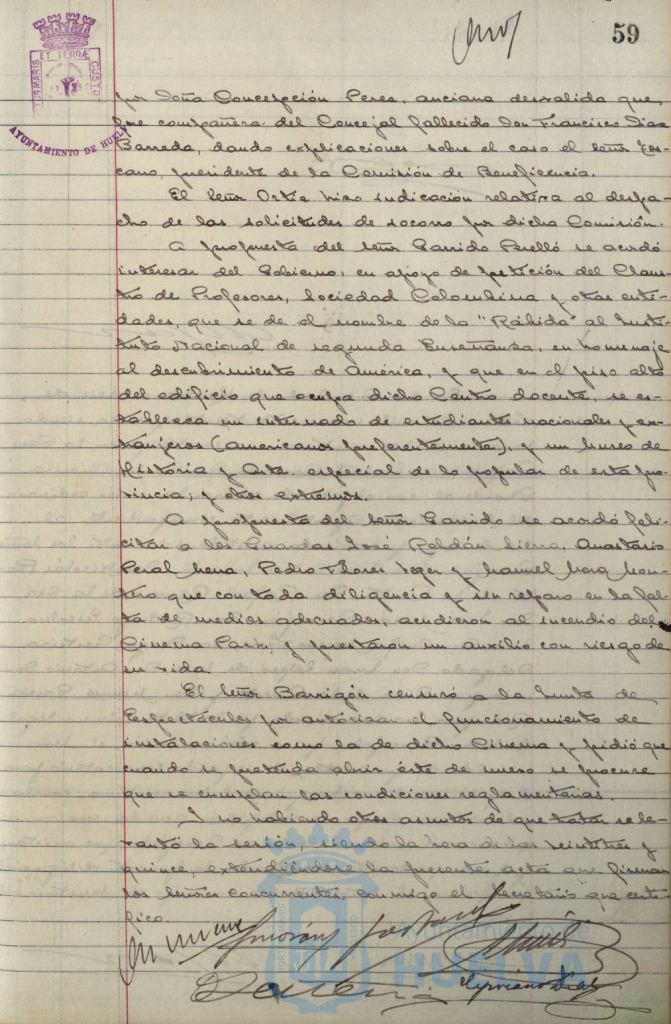 59
PORTUS MARIS ET TERRÆ CUSTODIA
AYUNTAMIENTO DE HUELVA
por Doña Concepción Perea, anciana desvalida que,
fue compañera del Concejal fallecido Don Francisco Diaz
Barreda, dando explicaciones sobre el caso el señor
cano, presidente de la Comisión de Beneficencia.
El Señor Ortiz hizo indicación relativa al despa-
cho de las solicitudes de socorro por dicha Comisión.
A propuesta del Señor Garrido Perelló se acordó
interesar del Gobierno, en apoyo de petición del Claus-
tro de Profesores, Sociedad Colombina y otras enti-
dades, que se de el nombre de la "Rábida" al Insti-
tuto Nacional de segunda Enseñanza, en homenaje
al descubrimiento de América, y que en el piso alto
del edificio que ocupa dicho Centro docente, se es-
tablezca un internado de estudiantes nacionales y ex-
tranjeros (americanos preferentemente), y un museo de
Historia y Arte, especial de lo popular de esta pro-
vincia; y otros extremos.
A propuesta del Señor Garrido se acordó feli-
citar a los Guardas José Roldán Sierra, Anastasio
Peral Mena, Pedro Flores y Manuel Mora Mon-
tero que con toda diligencia y sin reparo en la fal-
ta de medios adecuados, acudieron al incendio del
Cinema Park, y prestaron un auxilio con riesgo de
su vida.
El Señor Barrigón censuró a la Junta de
Espectáculos por autorizar el funcionamiento de
instalaciones como la de dicho Cinema y pidió que
cuando se pretenda abrir éste de nuevo se procure
que se cumplan las condiciones reglamentarias.
Y no habiendo otros asuntos de que tratar se le-
vantó la sesión, siendo la hora de las veintitres y
quince, extendiéndose la presente acta que firman
los Señores concurrentes, conmigo el Secretario que certi-
fico.
Ayuntamiento de
HUELVA
Cipriano Diaz